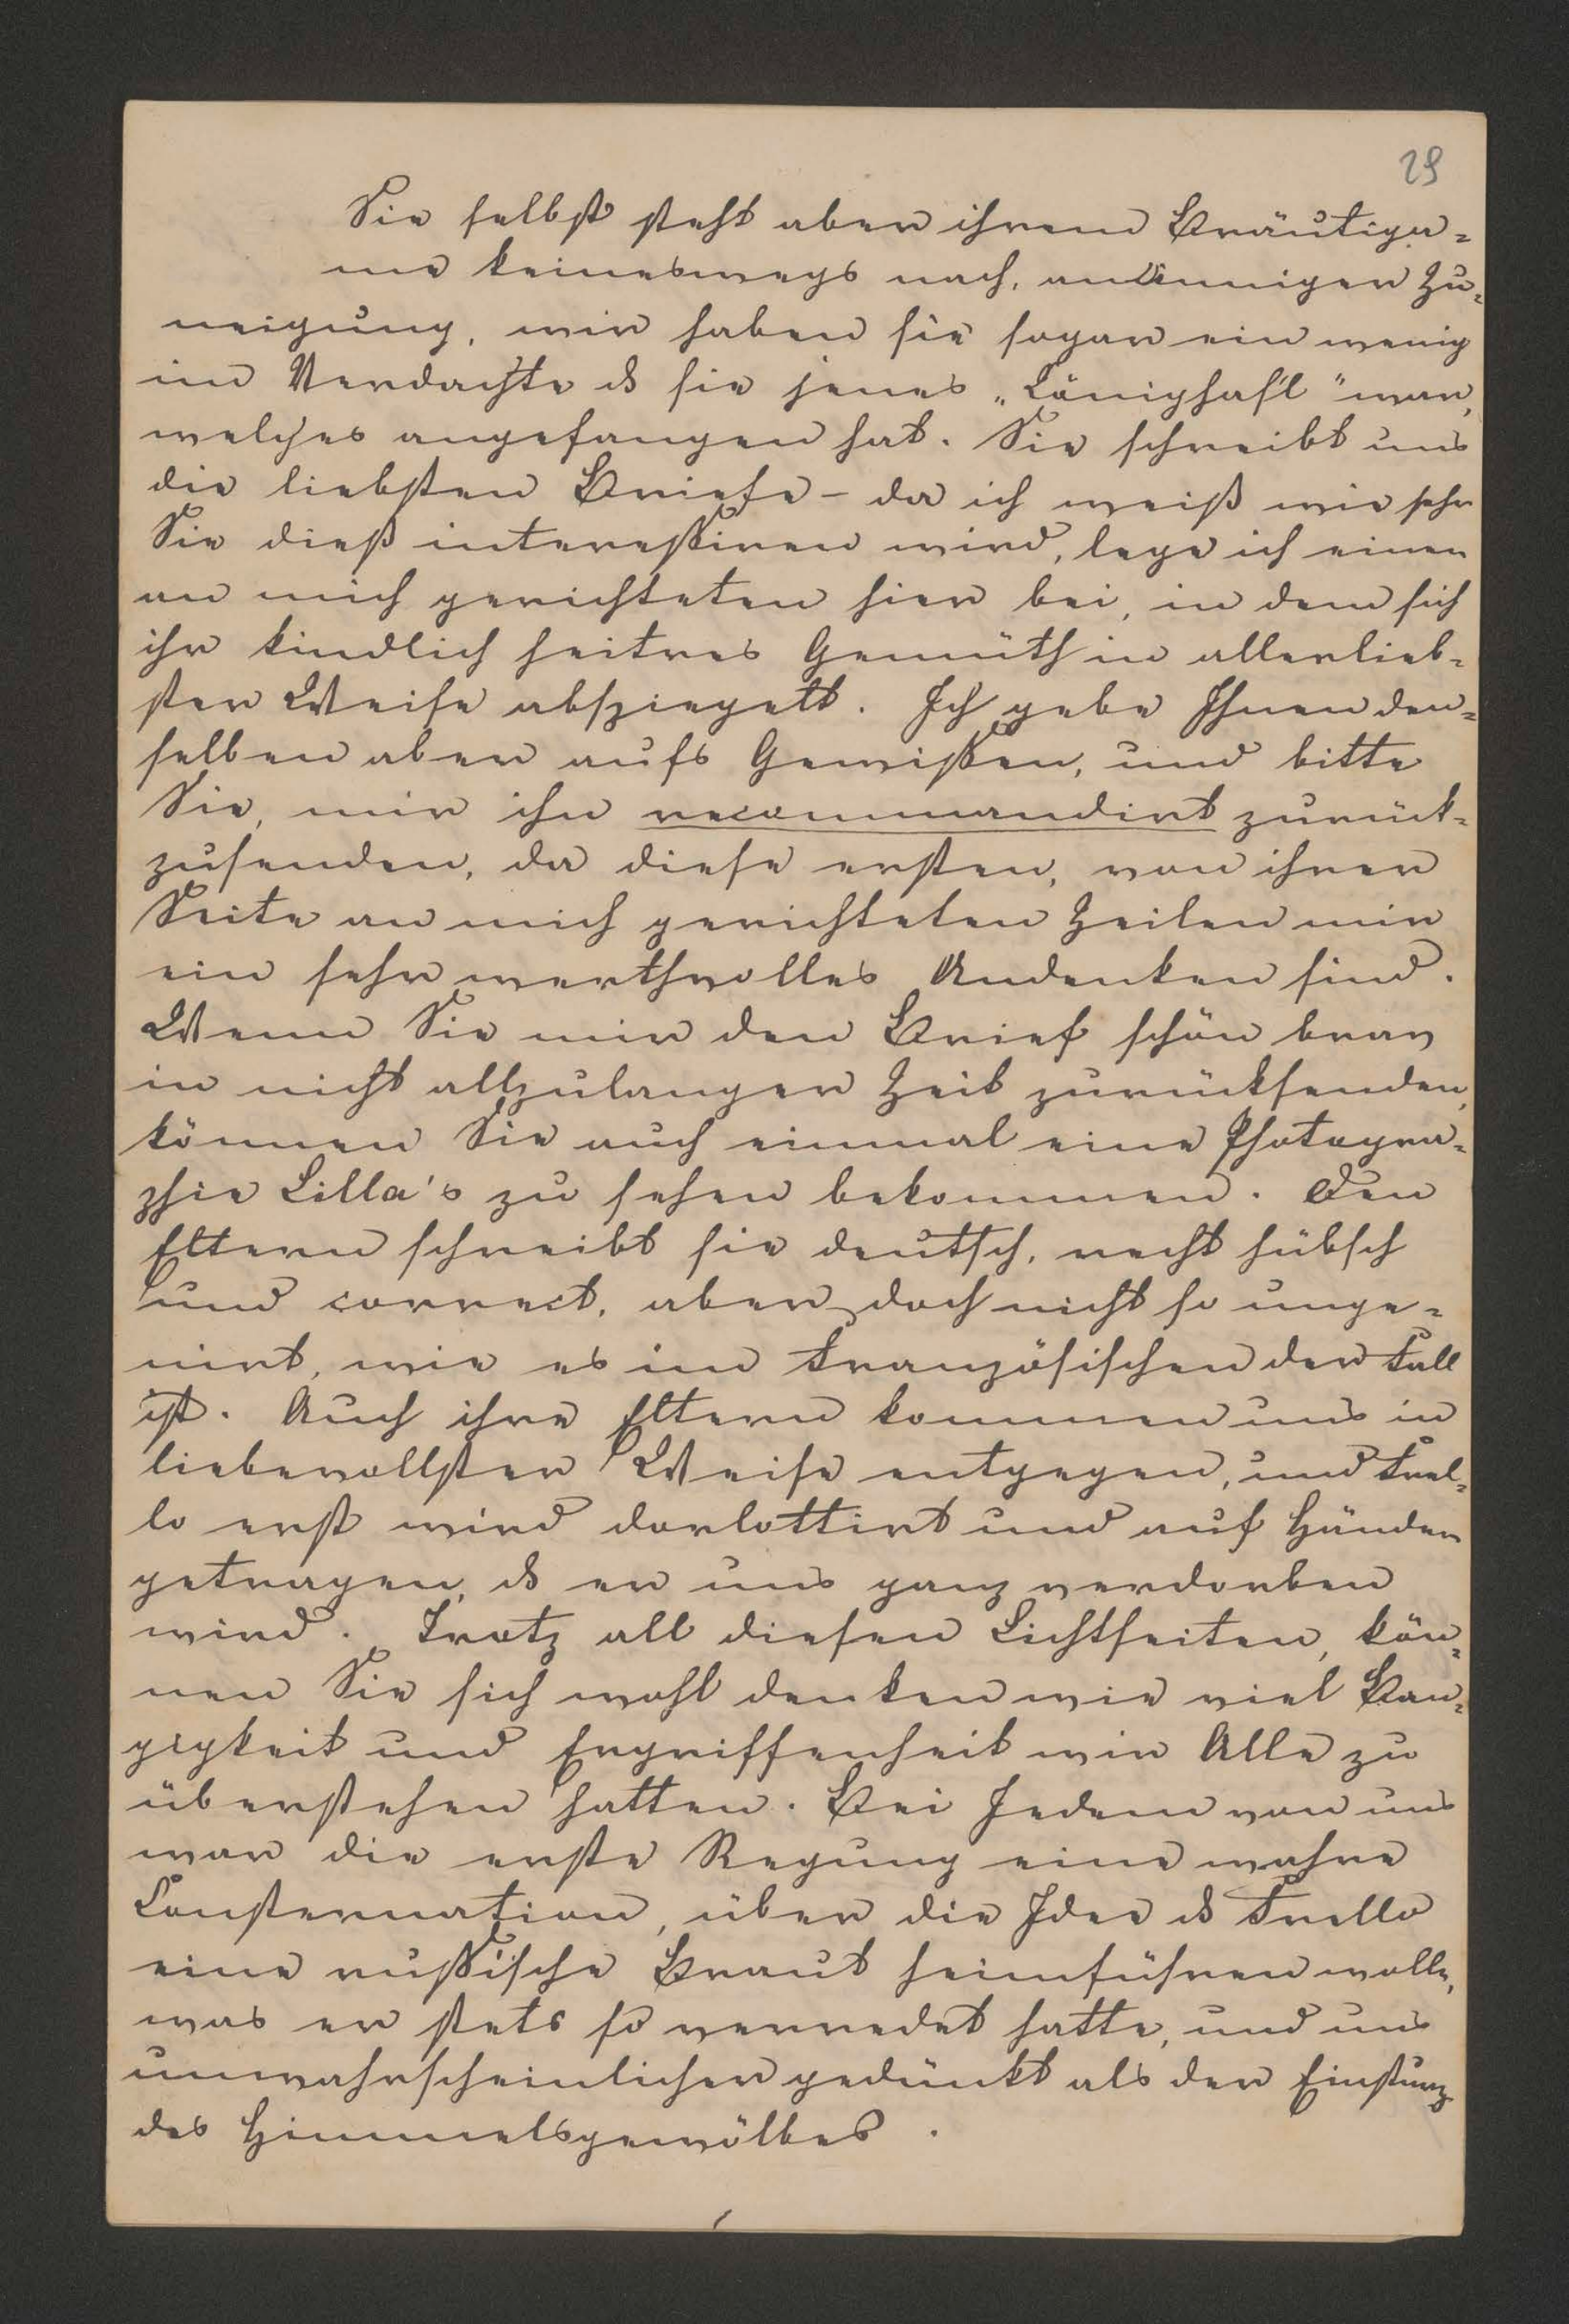 29
Sie selbst steht aber ihrem Bräutiga=
me keineswegs nach, an inniger Zu=
neigung, wir haben sie sogar ein wenig
im Verdachte ds sie jenes „ war,
welches angefangen hat. Sie schreibt uns
die liebsten Briefe – da ich weiß wie sehr
Sie dieß interessiren wird, lege ich einen
an mich gerichteten hier bei, in dem sich
ihr kindlich heitres Gemüth in allerlieb=
ster Weise abspiegelt. Ich gebe Ihnen den=
selben aber aufs Gewissen, und bitte
Sie, mir ihn recommandirt zurück=
zusenden, da diese ersten, von ihrer
Seite an mich gerichteten Zeilen mir
ein sehr werthvolles Andenken sind.
Wenn Sie mir den Brief schön brav
in nicht allzulanger Zeit zurücksenden,
können Sie auch einmal eine Photogra=
phie Lilla's zu sehen bekommen. Den
Eltern schreibt sie deutsch, recht hübsch
und correct, aber doch nicht so unge=
nirt, wie es im Französischen der Fall
ist. Auch ihre Eltern kommen uns in
liebevollster Weise entgegen, und Frel=
lo erst wird dorlottirt und auf Händen
getragen, ds er uns ganz verdorben
wird. Trotz all diesen Lichtseiten, kön=
nen Sie sich wohl denken wie viel Ban=
gigkeit und Ergriffenheit wir Alle zu
überstehen hatten. Bei Jedem von uns
war die erste Regung eine wahre
Consternation, über die Idee ds Frello
eine russische Braut heimführen wolle,
was er stets so verredet hatte, und uns
unwahrscheinlicher gedünkt als der Einsturz
des Himmelsgewölbes.